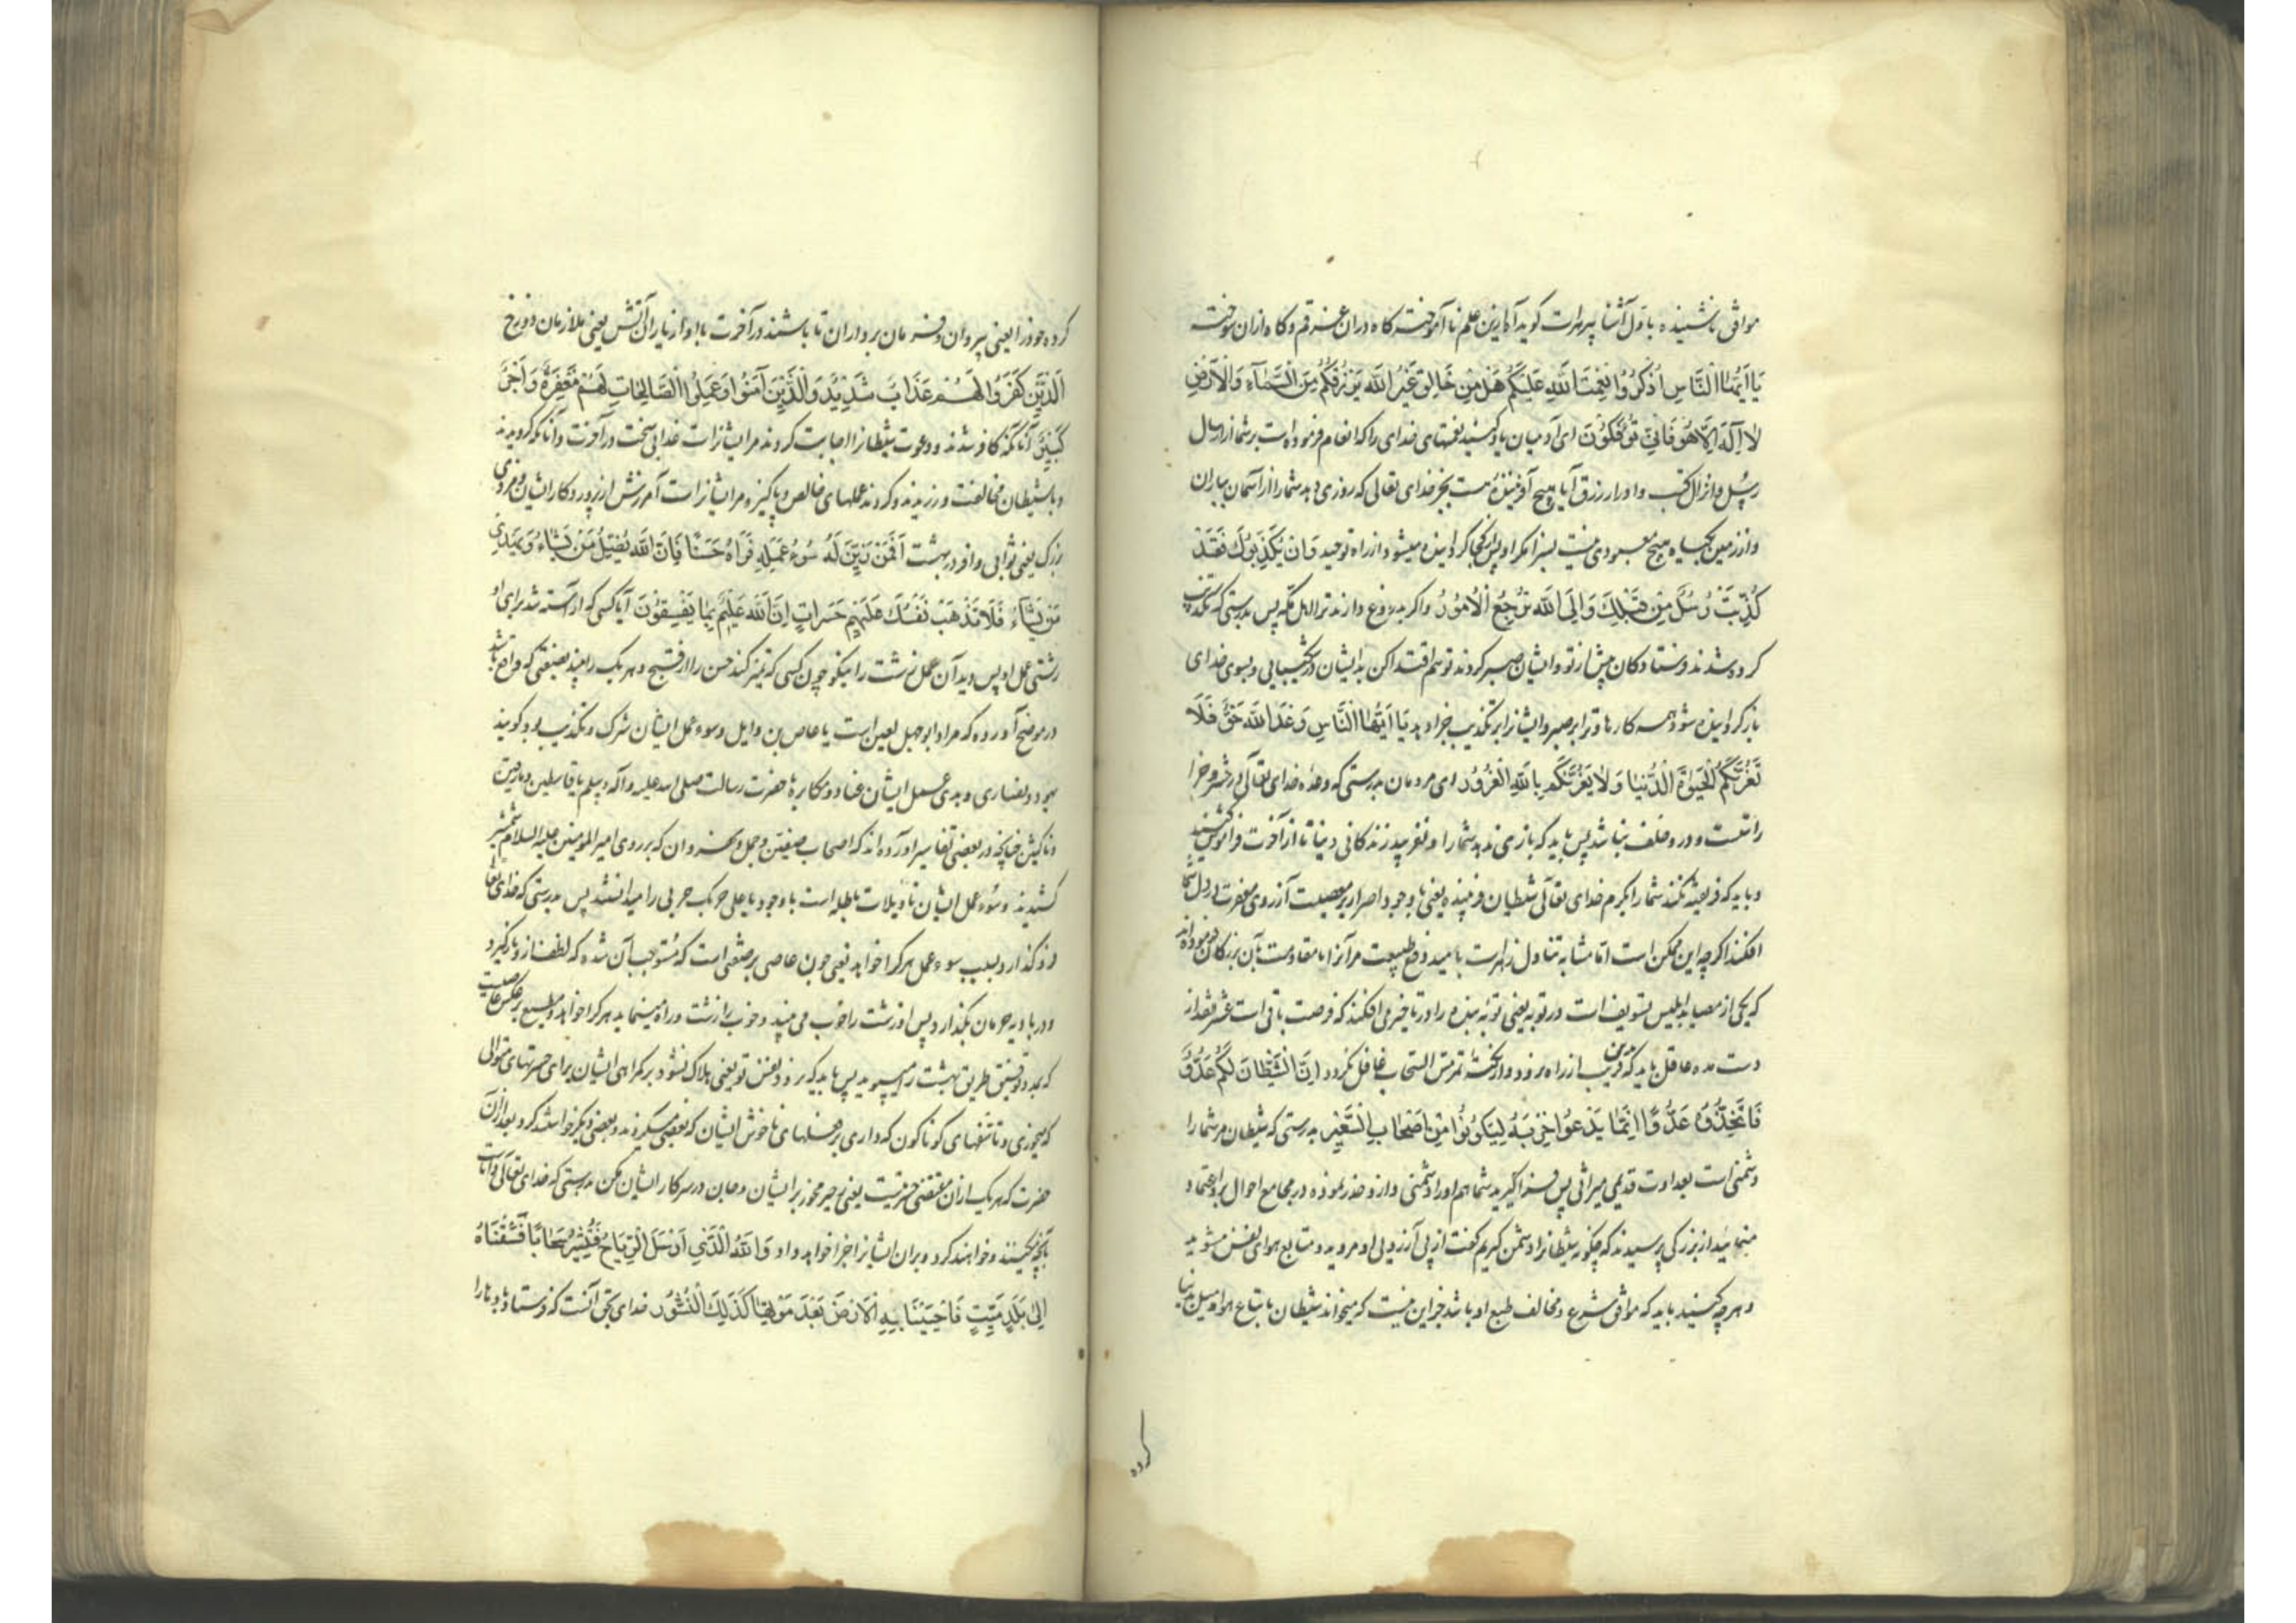 موافق ناشنیده با دل آشنا پیر هرات کوید آه ازین علم ناآموخته کاه دران غرقم و کاه ازان سوخته
یَا اَیُّهَا النَّاسِ اُذْکُرُوا نِعْمَتَ اللّٰهِ عَلَیْکُمْ هَلْ مِنْ خَالِقٍ غَیْرُ اللّٰهِ یَرْزُقُکُمْ مِنَ السَّمَآءِ وَالْاَرْضِ
لَا اِلٰهَ اِلَّا هُوَ فَاَنّٰی تُؤْفَکُوْنَ ای آدمیان یاد کنید نعمتهای خدای را که انعام فرموده است بر شما از ارسال
رسل و انزال کتب و ادرار رزق آیا هیچ آفریننده هست بجز خدای تعالی که روزی دهد شما را از آسمان بباران
و از زمین بکیاه هیچ معبودی نیست بسزا مکر او پس کجا کردانیده میشوید از راه توحید وَاِنْ یُکَذِّبُوْكَ فَقَدْ
کُذِّبَتْ رُسُلٌ مِنْ قَبْلِكَ وَاِلَی اللّٰهِ تُرْجَعُ الْاُمُوْرُ و اکر بدروغ دارند ترا اهل مکه پس بدرستی که تکذیب
کرده شدند فرستادکان پیش از تو و ایشان صبر کردند تو هم اقتدا کن بدایشان در شکیبایی و بسوی خدای
باز کردانیده شود همه کارها و ترا بر صبر و ایشانرا بر تکذیب جزا دهد یَا اَیُّهَا النَّاسِ وَعْدَ اللّٰهِ حَقٌّ فَلَا
تَغُرَّنَّکُمُ الْحَیٰوةُ الدُّنْیَا وَلَا یَغُرَّنَّکُمْ بِاللّٰهِ الْغَرُوْرُ ای مردمان بدرستی که وعده خدای تعالی در حشر و جزا
راستست و در و خلف نباشد پس باید که بازی ندهد شما را و نفریبد زندکانی دنیا تا از آخرت فراموش کنید
و باید که فریفته نکند شما را بکرم خدای تعالی شیطان فریبنده یعنی با وجود اصرار بر معصیت آرزوی مغفرت در دل شما
افکند اکرچه این ممکن است اما مشابه تناول زهرست بامید دفع طبیعت مر آنرا با مقاومت بآن بزرکان فرموده اند
که یکی از مصاید ابلیس تسویف است در توبه یعنی توبه بنده را در تاخیر می افکند که فرصت باقی است عشرت نقد از
دست مده عاقل باید که بدین فریب از راه نرود و از نکته تمر مر السحاب غافل نکردد اِنَّ الشَّیْطَانَ لَکُمْ عَدُوٌّ
فَاتَّخِذُوْهُ عَدُوًّا اِنَّمَا یَدْعُوا حِزْبَهُ لِیَکُوْنُوْا مِنْ اَصْحَابِ السَّعِیْرِ بدرستی که شیطان مر شما را
دشمنی است بعداوت قدیمی میراثی پس فرا کیرید شما هم او را دشمنی و از و حذر نموده در مجامع احوال برو اعتماد
منمائید از بزرکی پرسیدند که چکونه شیطانرا دشمن کیریم کفت از پی آرزوی او مروید و متابع هوای نفس مشوید
و هرچه کنید باید که موافق شرع و مخالف طبع او باشد جز این نیست که میخواند شیطان باتباع هوا و میل بدنیا
کرده
کرده خود را یعنی پیروان و فرمان برداران تا باشند در آخرت با او از یاران آتش یعنی ملازمان دوزخ
اَلَّذِیْنَ کَفَرُوا لَهُمْ عَذَابٌ شَدِیْدٌ وَالَّذِیْنَ آمَنُوا وَعَمِلُوا الصَّالِحَاتِ لَهُمْ مَغْفِرَةٌ وَاَجْرٌ
کَبِیْرٌ آنانکه کافر شدند و دعوت شیطانرا اجابت کردند مر ایشانراست عذابی سخت در آخرت و آنانکه کرویدند
و با شیطان مخالفت ورزیدند و کردند عملهای خالص و پاکیزه مر ایشانراست آمرزش از پروردکار ایشان و مزدی
بزرک یعنی ثوابی وافر در بهشت اَفَمَنْ زُیِّنَ لَهُ سُوْءُ عَمَلِهِ فَرَاٰهُ حَسَنًا فَاِنَّ اللّٰهَ یُضِلُّ مَنْ یَشَاءُ وَیَهْدِی
مَنْ یَشَاءُ فَلَا تَذْهَبْ نَفْسُكَ عَلَیْهِمْ حَسَرَاتٍ اِنَّ اللّٰهَ عَلِیْمٌ بِمَا یَصْنَعُوْنَ آیا کسی که آراسته شد برای او
زشتی عمل او پس دید آن عمل زشت را نیکو چون کسی که تمیز کند حسن را از قبیح و هر یک را بیند بصفتی که واقع باشد
در موضح آورده که مراد ابوجهل لعین است یا عاص بن وایل و سوء عمل ایشان شرک و تکذیب بود و کویند
یهود و نصاری و بدی عمل ایشان عناد و مکابره با حضرت رسالت صلی الله علیه و آله و سلم یا قاسطین و مارقین
و ناکثین چنانچه در بعضی تفاسیر آورده اند که اصحاب صفین و جمل و نهروان که بر روی امیر المومنین علیه السلام شمشیر
کشیدند و سوء عمل ایشان تاویلات باطله است با وجود یا علی حربک حربی را میدانستند پس بدرستی که خدای تعالی
فرو کذارد بسبب سوء عمل هر کرا خواهد یعنی چون عاصی بر صفتی است که مستوجب آن شده که لطف از و باز کیرد
و در بادیه حرمان بکذارد پس او زشت را خوب می بیند و خوب را زشت و راه مینماید هر کرا خواهد و مطیع بر عکس عاصیست
که بمدد توفیق طریق بهشت را میپوید پس باید که نرود نفس تو یعنی هلاک نشود بر کمراهی ایشان برای حسرتهای متوالی
که میخوری و تاسفهای کوناکون که داری بر فعلهای ناخوش ایشان که بعضی میکردند و بعضی دیکر خواستند کرد بعد از آن
حضرت که هر یک از آن مقتضی حسرتست یعنی حسرت مخور بر ایشان و جان در سر کار ایشان مکن بدرستی که خدای تعالی داناست
بآنچه میکنند و خواهند کرد و بران ایشانرا جزا خواهد داد وَاللّٰهُ الَّذِیْ اَرْسَلَ الرِّیَاحَ فَتُثِیْرُ سَحَابًا فَسُقْنَاهُ
اِلٰی بَلَدٍ مَیِّتٍ فَاَحْیَیْنَا بِهِ الْاَرْضَ بَعْدَ مَوْتِهَا کَذٰلِكَ النُّشُوْرُ خدای بحق آنست که فرستاد بادها را